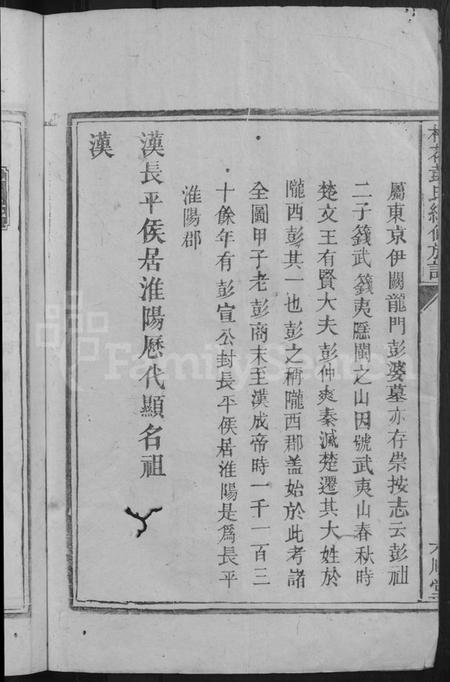 屬東京伊闕龍門彭婆墓亦存崇按志云彭祖
二子籛武籛夷匿閩之山因號武夷山春秋時
楚文王有賢大夫彭仲爽秦滅楚遷其大姓於
隴西彭其一也彭之稱隴西郡蓋始於此考諸
全圖甲子老彭商末至漢成帝時一千一百三
十餘年有彭宣公封長平侯居淮陽是爲長平
淮陽郡
漢長平侯居淮陽歷代顯名祖
漢
FamilySearch